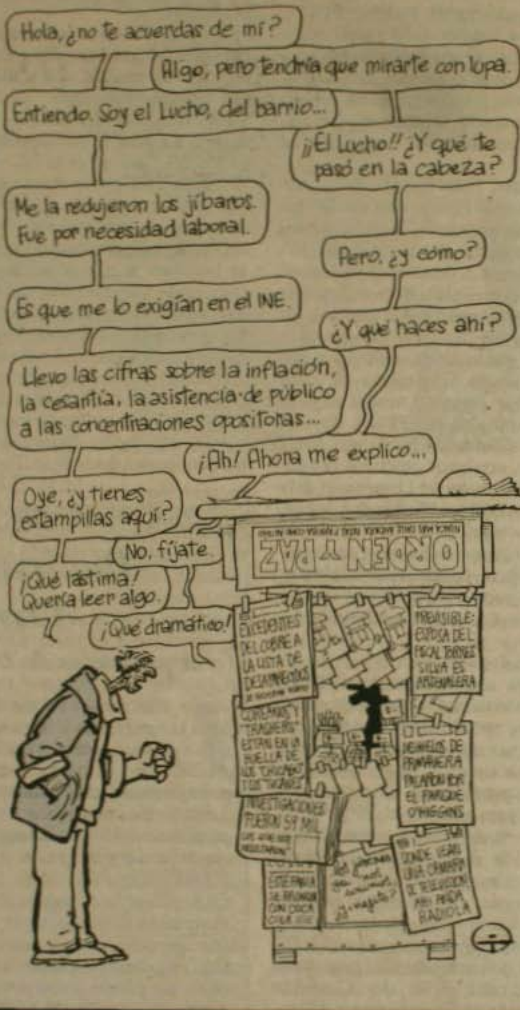 Hola, ¿no te acuerdas de mí?
Algo, pero tendría que mirarte con lupa.
Entiendo. Soy el Lucho, del barrio...
¡¡El Lucho!! ¿Y qué te
pasó en la cabeza?
Me la redujeron los jíbaros.
Fue por necesidad laboral.
Pero, ¿y cómo?
Es que me lo exigían en el INE.
¿Y qué haces ahí?
Llevo las cifras sobre la inflación,
la cesantía, la asistencia de público
a las concentraciones opositoras...
¡Ah! Ahora me explico...
Oye, ¿y tienes
estampillas aquí?
No, fíjate.
¡Qué lástima!
Quería leer algo.
¡Qué dramático!
ORDEN Y PAZ
EXCEDENTES
DEL COBRE A
LA LISTA DE
DESAPARECIDOS
PREVISIBLE:
ESPOSA DEL
FISCAL TORRES
SILVA ES
ARSENALERA
COREANOS Y
"TRASHERS"
ESTAN EN LA
HUELLA DE
LOS
Y LOS
DESHIELOS DE
PRIMAVERA
POR
EL PARQUE
O'HIGGINS
INVESTIGACIONES
FUERON 59 MIL
DONDE VEAN
UNA CAMARA
DE TELEVISION
AHI ANDA
BADIOLA
ESTE PAPA
SE
CON COCA
COLA